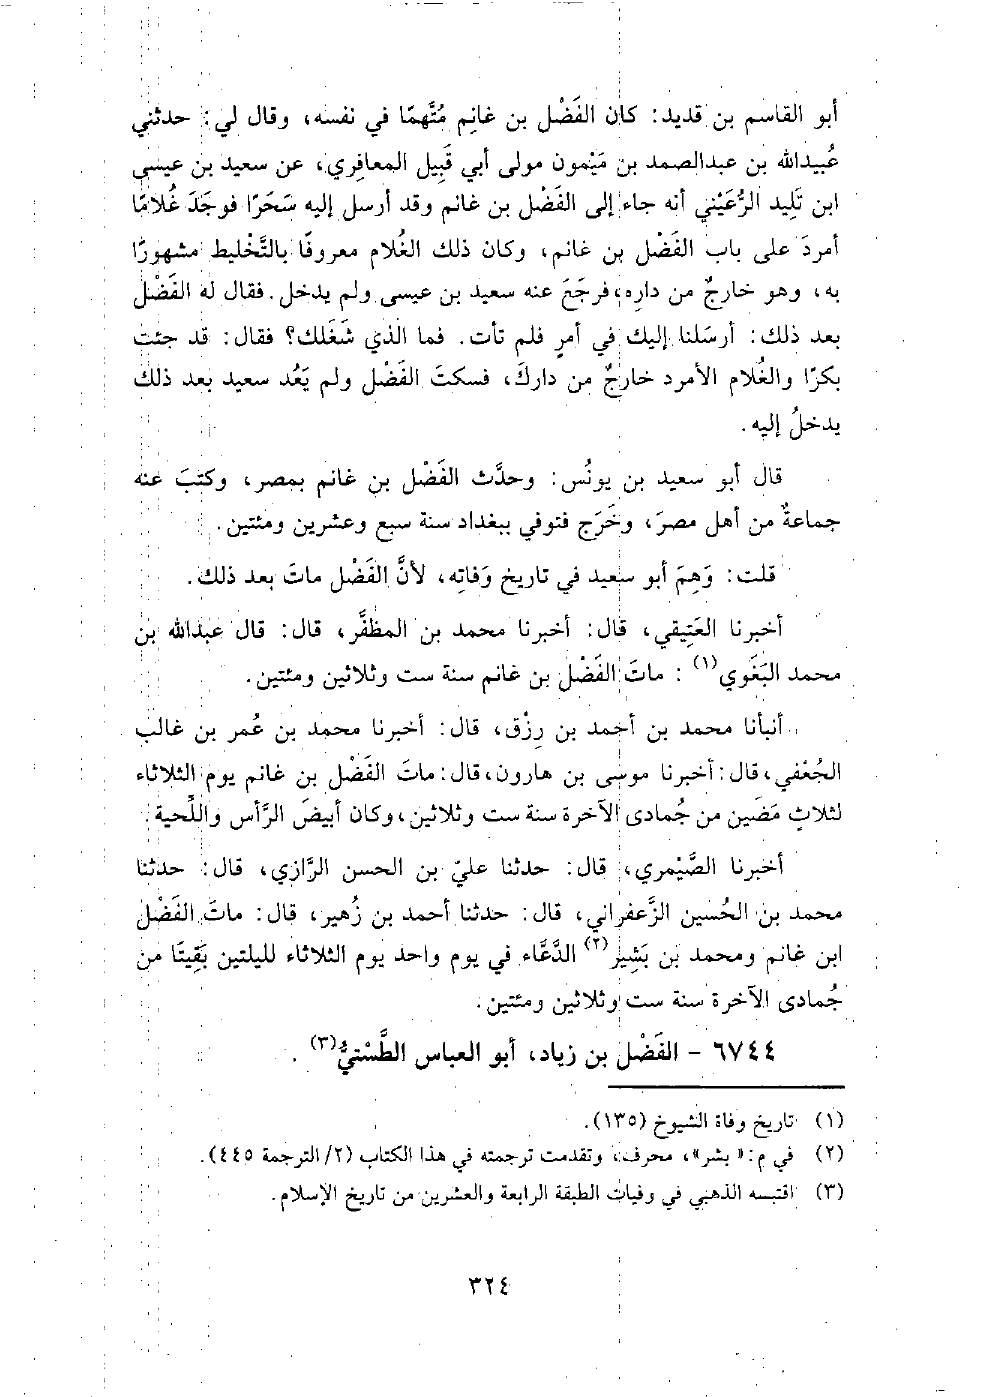 أبو القاسم بن قديد: كان الفَضْل بن غانِم مُتَّهمًا في نفسه، وقال لي: حدثني
عُبيدالله بن عبدالصمد بن مَيْمون مولى أبي قَبِيل المعافِري، عن سعيد بن عيسى
ابن تَلِيد الرُّعَيْني أنه جاء إلى الفَضْل بن غانم وقد أرسل إليه سَحَرًا فوجَدَ غُلامًا
أمردَ على باب الفَضْل بن غانم، وكان ذلك الغُلام معروفًا بالتَّخْليط مشهورًا
به، وهو خارجٌ من دارِه، فرجَعَ عنه سعيد بن عيسى ولم يدخل. فقال له الفَضْل
بعد ذلك: أرسَلنا إليك في أمرٍ فلم تأت. فما الذي شَغَلك؟ فقال: قد جئت
بكرًا والغُلام الأمرد خارجٌ من دارِكَ، فسكتَ الفَضْل ولم يَعُد سعيد بعد ذلك
يدخلُ إليه.
قال أبو سعيد بن يونُس: وحدَّث الفَضْل بن غانم بمصر، وكتبَ عنه
جماعةٌ من أهل مصرَ، وخَرَج فتوفي ببغداد سنة سبع وعشرين ومئتين.
قلت: وَهِمَ أبو سعيد في تاريخ وَفاتِه، لأنَّ الفَضْل ماتَ بعد ذلك.
أخبرنا العَتِيقي، قال: أخبرنا محمد بن المظفَّر، قال: قال عبدالله بن
محمد البَغَوي(١): ماتَ الفَضْل بن غانم سنة ست وثلاثين ومئتين.
أنبأنا محمد بن أحمد بن رِزْق، قال: أخبرنا محمد بن عُمر بن غالب
الجُعْفي، قال: أخبرنا موسى بن هارون، قال: ماتَ الفَضْل بن غانم يوم الثلاثاء
لثلاثٍ مَضَين من جُمادى الآخرة سنة ست وثلاثين، وكان أبيضَ الرَّأس واللِّحية.
أخبرنا الصَّيْمري، قال: حدثنا عليّ بن الحسن الرَّازي، قال: حدثنا
محمد بن الحُسين الزَّعفراني، قال: حدثنا أحمد بن زُهير، قال: ماتَ الفَضْل
ابن غانم ومحمد بن بَشِير(٢) الدَّعَّاء في يوم واحد يوم الثلاثاء لليلتين بَقِيتَا من
جُمادى الآخرة سنة ست وثلاثين ومئتين.
٦٧٤٤ - الفَضْل بن زياد، أبو العباس الطَّسْتيُّ(٣).
(١) تاريخ وفاة الشيوخ (١٣٥).
(٢) في م: «بشر»، محرف، وتقدمت ترجمته في هذا الكتاب (٢/ الترجمة ٤٤٥).
(٣) اقتبسه الذهبي في وفيات الطبقة الرابعة والعشرين من تاريخ الإسلام.
٣٢٤